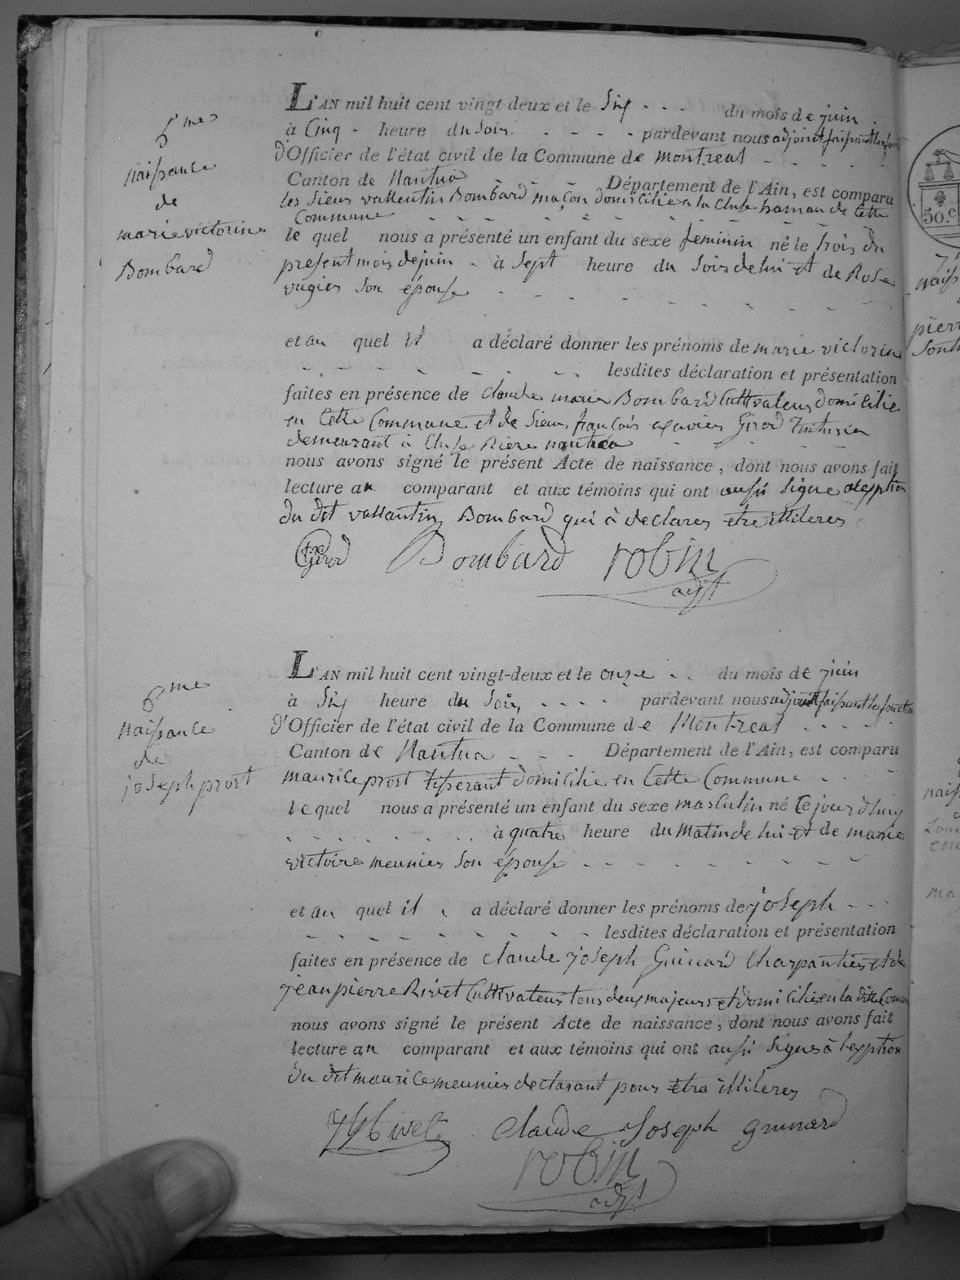 5mes
naissance
de
marie victorine
Bombard
L'AN mil huit cent vingt-deux et le six - - - du mois de juin
à Cinq - heure du soir - - - - pardevant nous adjoint faisant les fonc
d'Officier de l'état civil de la Commune de montreal - - - -
Canton de Nantua - - - Département de l'Ain, est comparu
les sieur vallentin Bombard maçon domicilié a la Cluse hamau de Cette
Commune - - - - - - - -
le quel nous a présenté un enfant du sexe feminin né le trois du
present mois de juin - à sept heure du soir de lui et de Rose
vugier son épouse - - - - - -
et au quel il a déclaré donner les prénoms de marie victorine
- - - - - - lesdites déclaration et présentation
faites en présence de claude marie Bombard Cultivateur domicilié
en Cette Commune et de sieur françois xavier Girod
demeurant à Cluse Riere nantua
nous avons signé le présent Acte de naissance, dont nous avons fait
lecture au comparant et aux témoins qui ont aussi signe a lexeption
du dit vallantin Bombard qui à declares etre illiteres
Girod Bombard robin
adjt
6me
naissance
de
joseph prost
L'AN mil huit cent vingt-deux et le onze - - du mois de juin
à six heure du soir - - - - pardevant nous adjoint faisant les fonct
d'Officier de l'état civil de la Commune de Montreal - - - -
Canton de Nantua - - - Département de l'Ain, est comparu
maurice prost tisserant domicilié en Cette Commune - - -
le quel nous a présenté un enfant du sexe masculin né ce jour d'huy
- - - - - - à quatre heure du matin de lui et de marie
victoire meunier son épouse - - - - - - -
et au quel il - a déclaré donner les prénoms de joseph - - -
- - - - - - - - - lesdites déclaration et présentation
faites en présence de claude joseph Guinard Charpantier et de
jean pierre Rivet Cultivateur tous deux majeurs et domicilié en la ditte Comune
nous avons signé le présent Acte de naissance, dont nous avons fait
lecture au comparant et aux témoins qui ont aussi signes à lexeption
du dit maurice meunier declarant pour etre illiteres
Rivet claude joseph guinard
robin
adjt
50.c